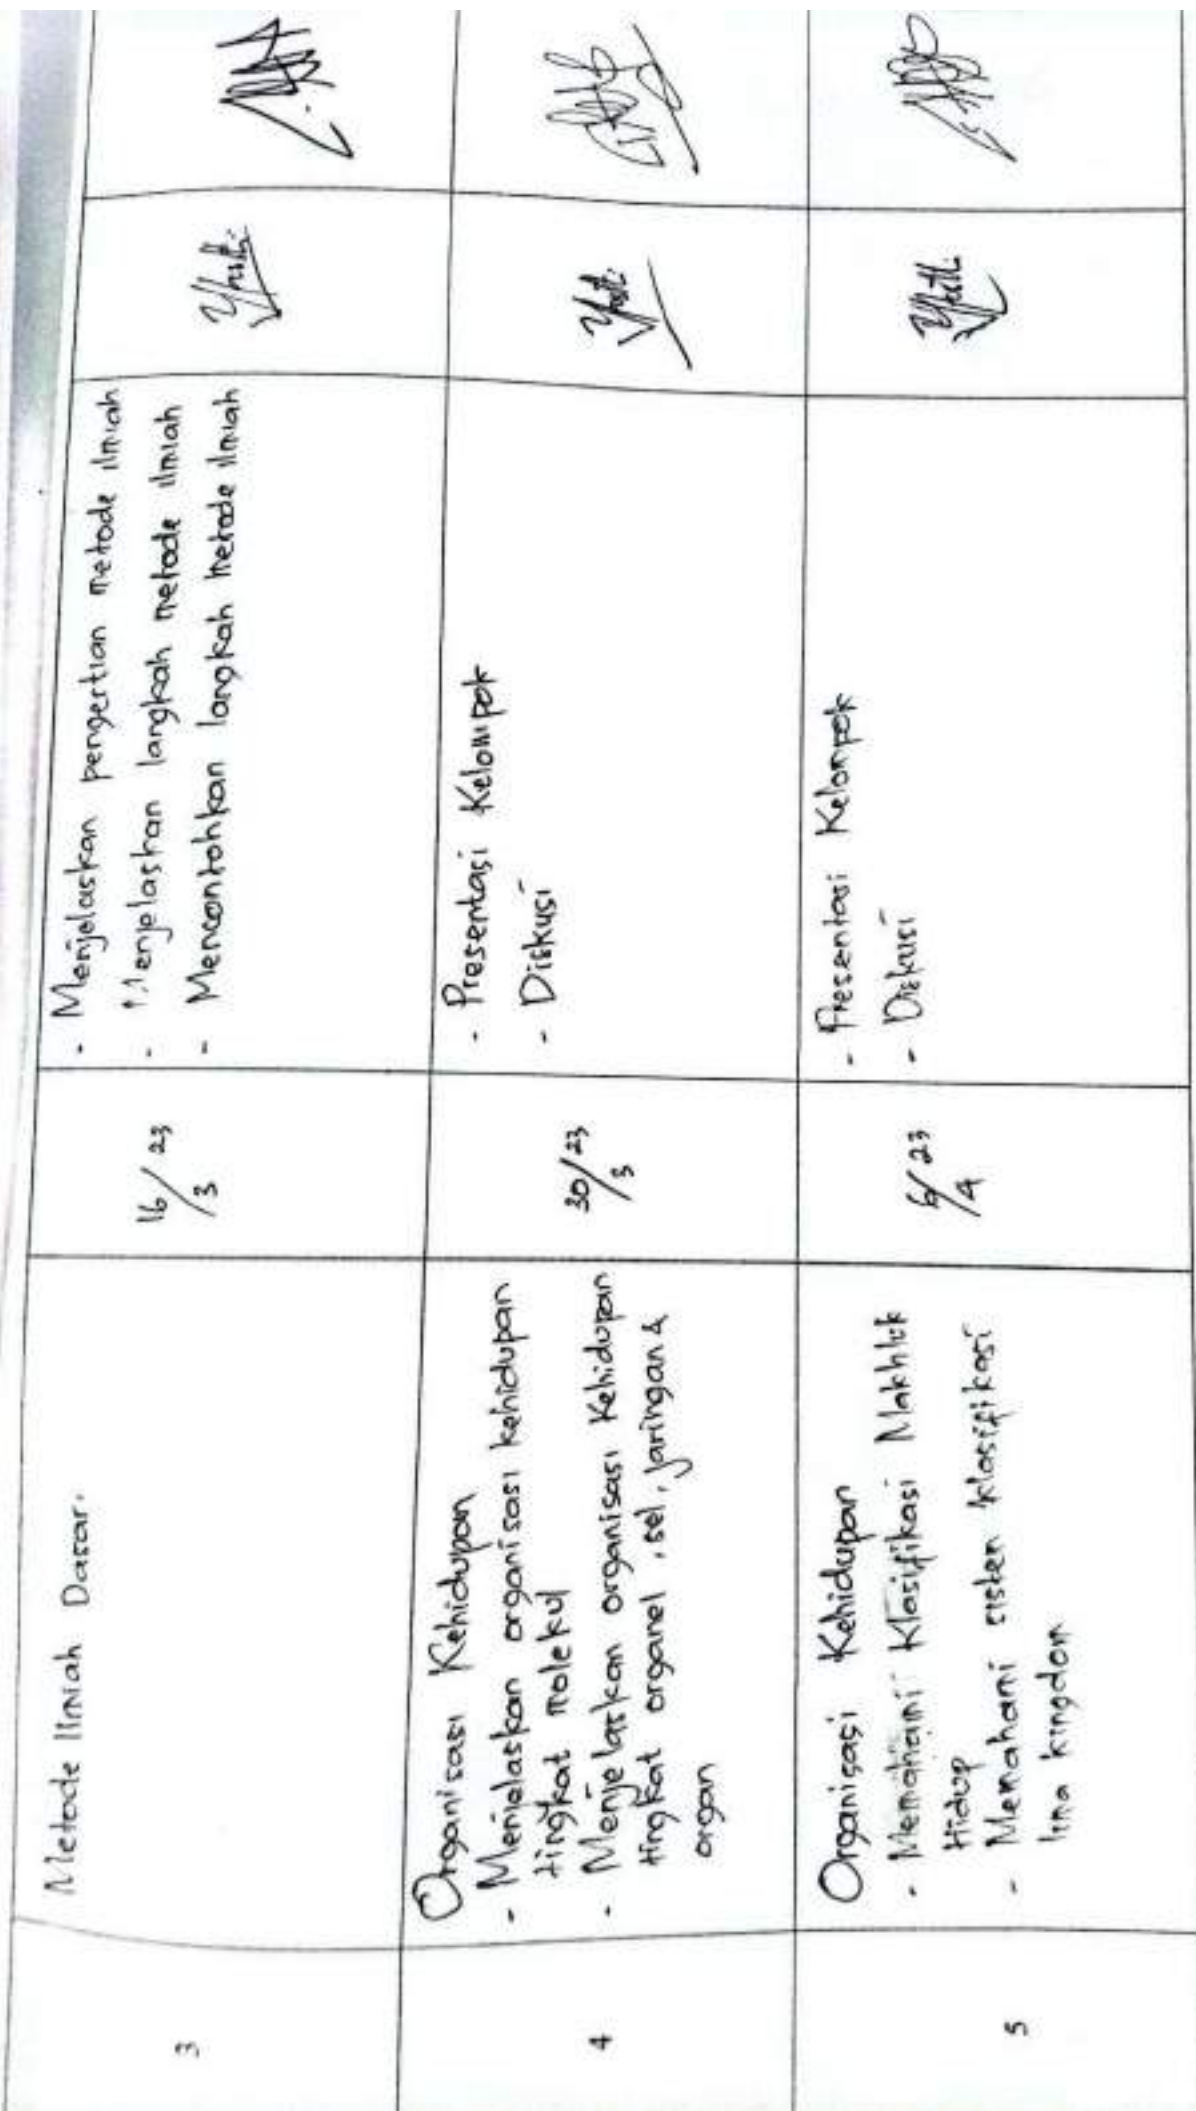 3
Metode Ilmiah Dasar.
16/3 23
- Menjelaskan pengertian metode ilmiah
- Menjelaskan langkah metode ilmiah
- Mencontohkan langkah metode ilmiah
4
Organisasi Kehidupan
- Menjelaskan organisasi kehidupan
tingkat molekul
- Menjelaskan organisasi Kehidupan
tingkat organel, sel, jaringan &
organ
30/3 23
- Presentasi Kelompok
- Diskusi
5
Organisasi Kehidupan
- Memahami Klasifikasi Makhluk
Hidup
- Memahami sistem klasifikasi
lima kingdom
6/4 23
- Presentasi Kelompok
- Diskusi